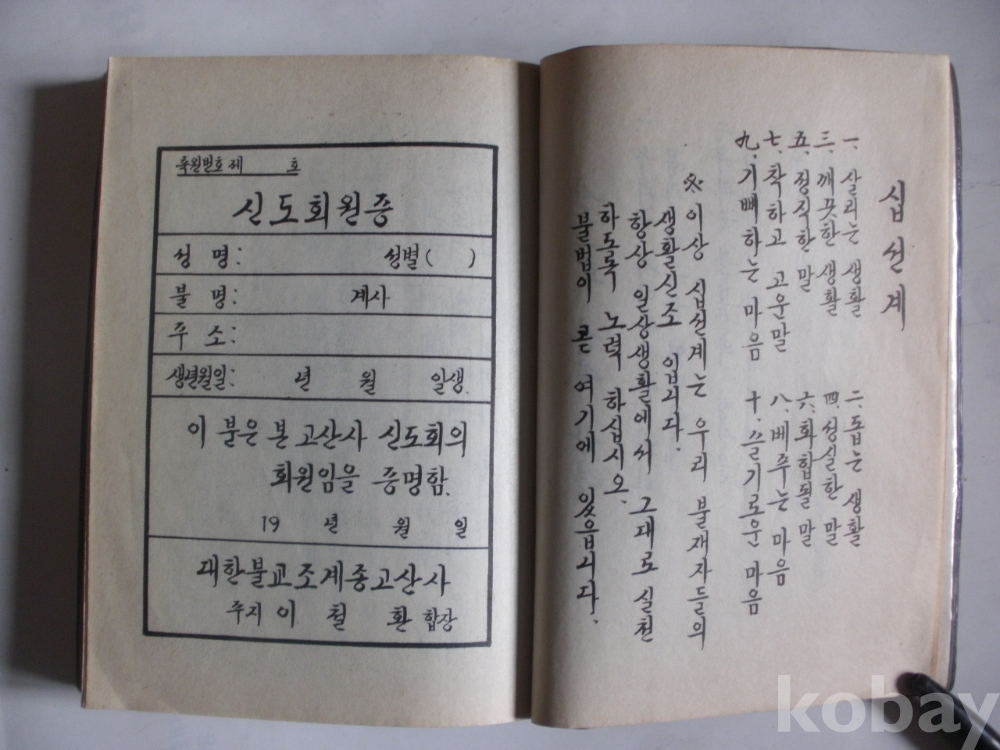 축원번호 제 호
신도회원증
성 명: 성별( )
불 명: 계사
주 소:
생년월일: 년 월 일생.
이 분은 본 고산사 신도회의
회원임을 증명함.
19 년 월 일
대한불교조계종고산사
주지 이 철 환 합장
십선계
一. 살리는 생활
二. 돕는 생활
三. 깨끗한 생활
四. 성실한 말
五. 정직한 말
六. 화합될 말
七. 착하고 고운말
八. 베푸는 마음
九. 기뻐하는 마음
十. 슬기로운 마음
※ 이상 십선계는 우리 불재자들의
생활신조 입니다.
항상 일상생활에서 그대로 실천
하도록 노력 하십시오.
불법이 곧 여기에 있읍니다.
kobay